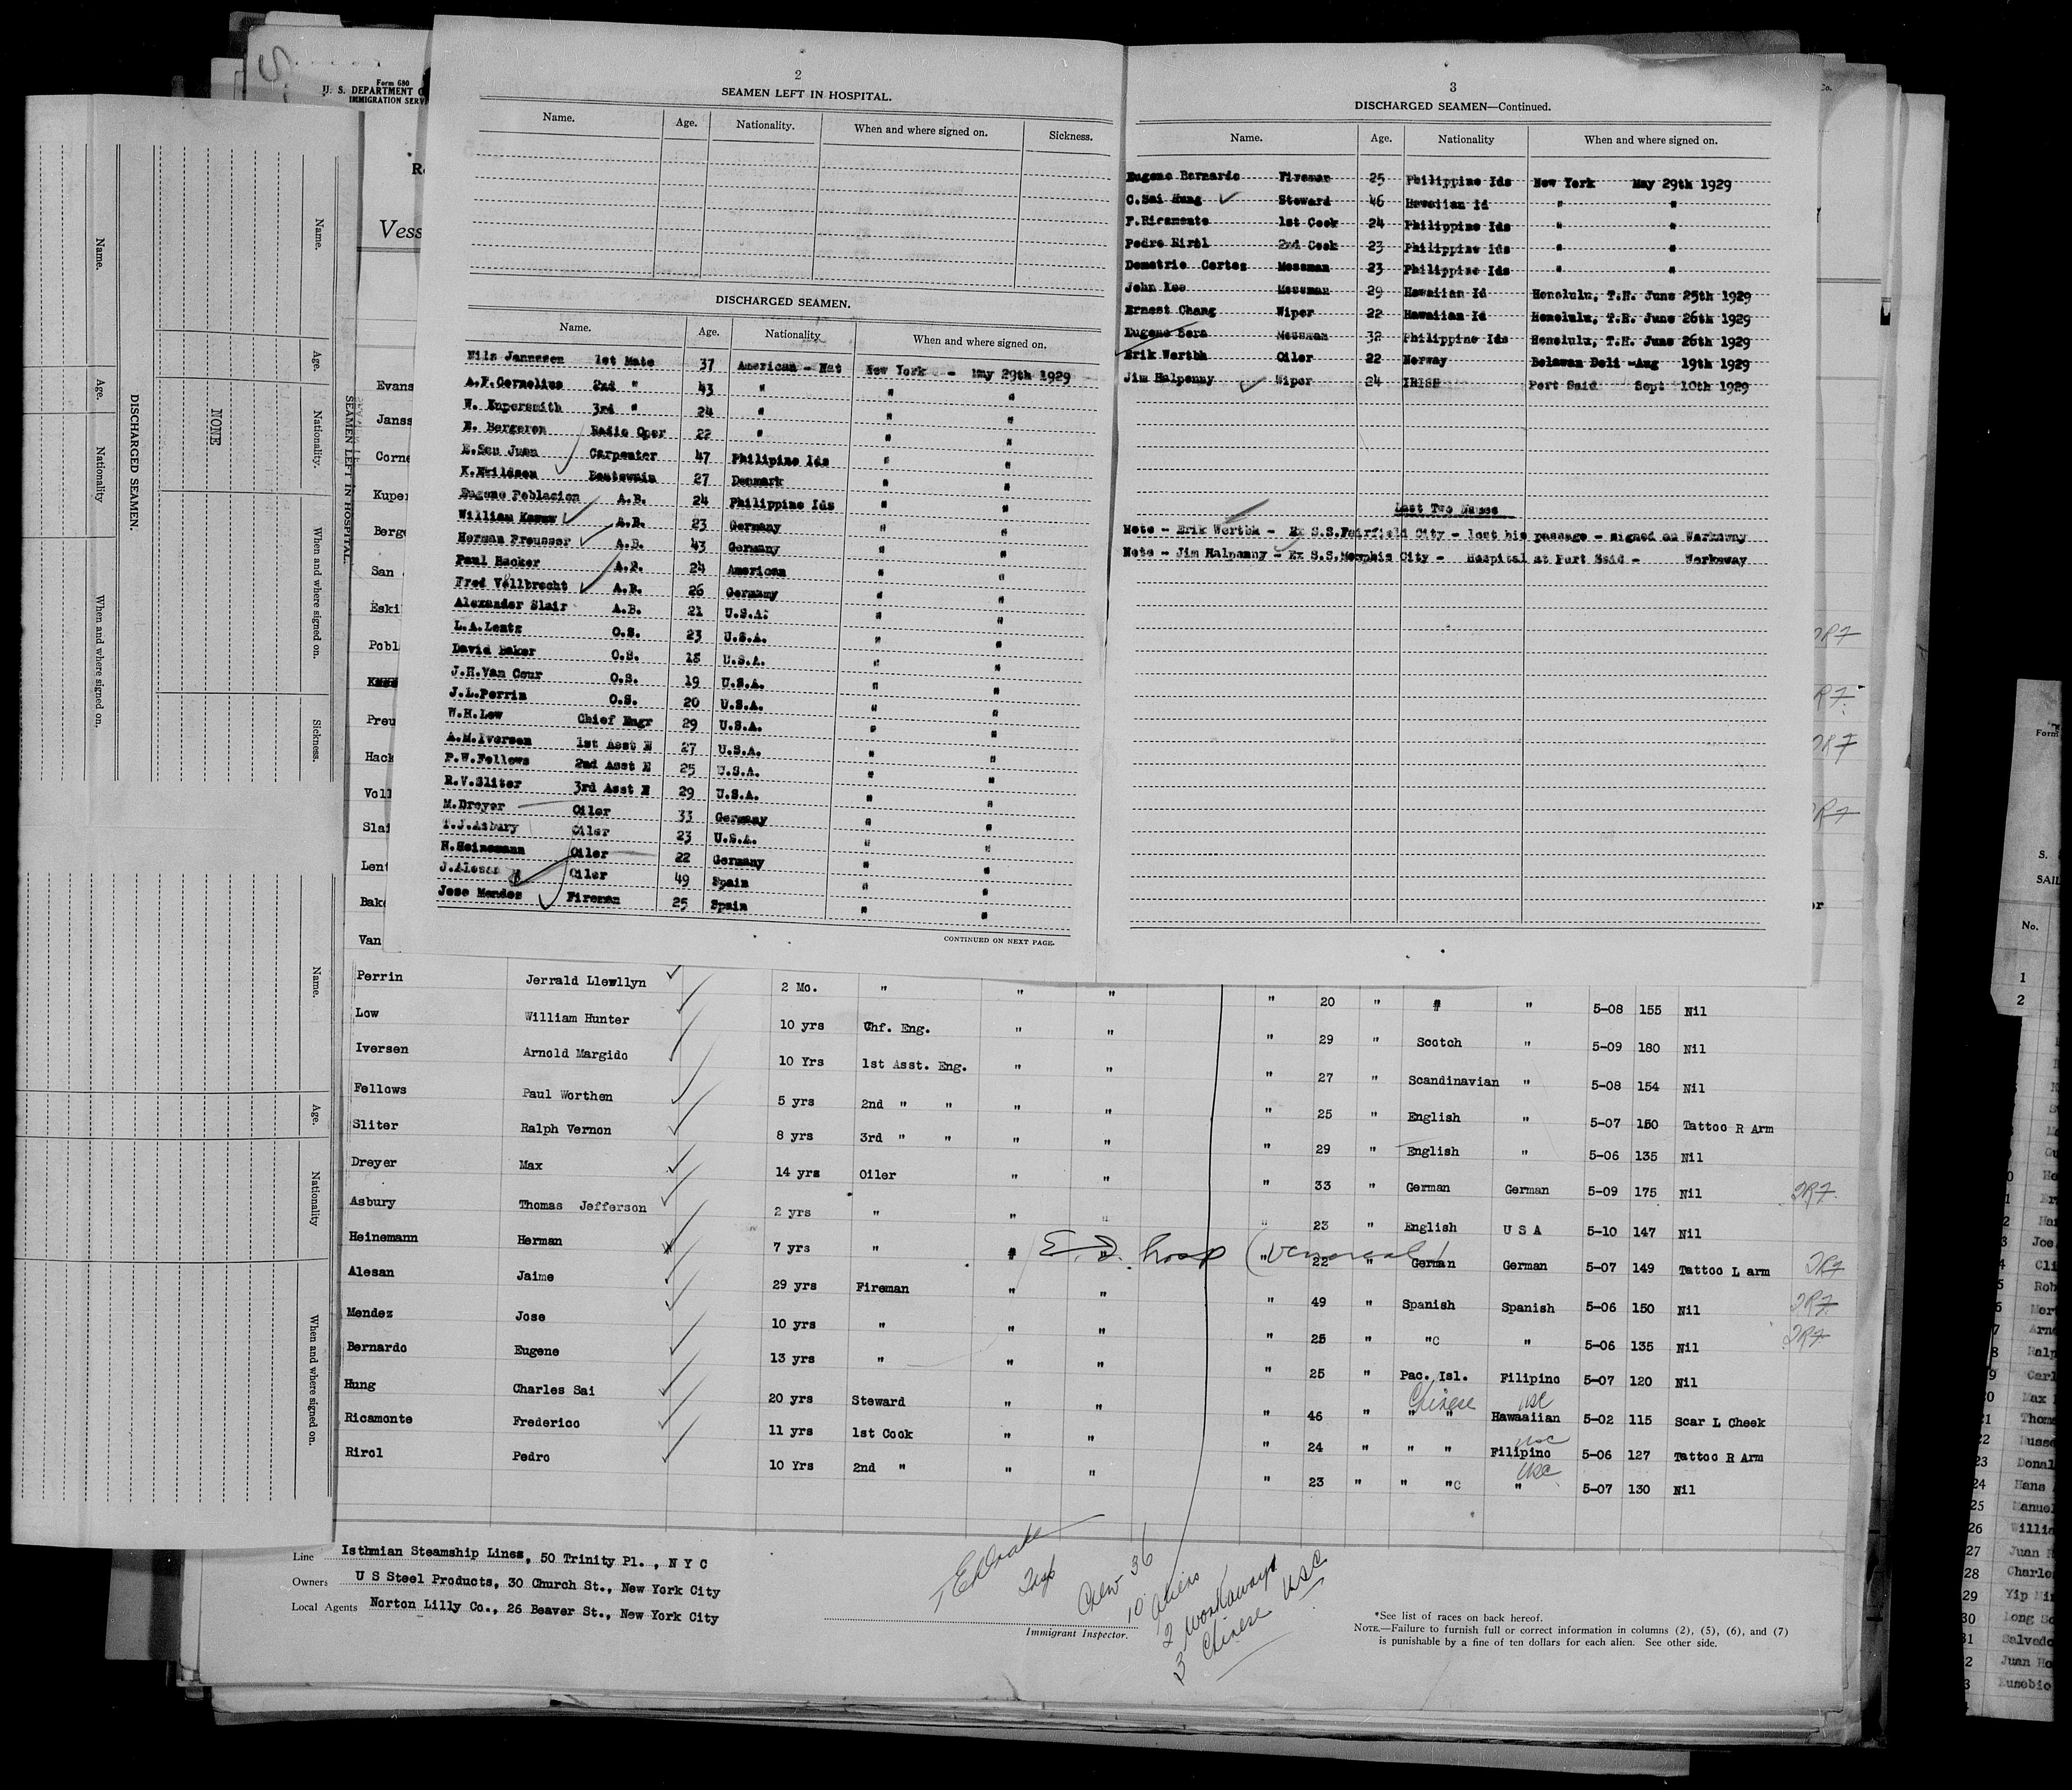 Form 680
U. S. DEPARTMENT O
IMMIGRATION SERV
Vess
2
SEAMEN LEFT IN HOSPITAL.
Name. Age. Nationality. When and where signed on. Sickness.
DISCHARGED SEAMEN.
Name. Age. Nationality When and where signed on.
Nils Jannssen 1st Mate 37 American - Nat New York - May 29th 1929
A.F.Cornelius 2nd " 43 " " "
W. Kupersmith 3rd " 24 " " "
E. Bergeron Radio Oper 22 " " "
E.San Juan Carpenter 47 Philipine Ids " "
K.Eskildsen Boatswain 27 Denmark " "
Eugene Poblacion A.B. 24 Philippine Ids " "
William A.B. 23 Germany " "
Herman Preusser A.B. 43 Germany " "
Paul Hacker A.B. 24 American " "
Fred Vollbrecht A.B. 26 Germany " "
Alexander Slair A.B. 21 U.S.A. " "
L.A.Lentz O.S. 23 U.S.A. " "
David Baker O.S. 18 U.S.A. " "
J.H.Van Cour O.S. 19 U.S.A. " "
J.L.Perrin O.S. 20 U.S.A. " "
W.H.Low Chief Engr 29 U.S.A. " "
A.M.Iversen 1st Asst E 27 U.S.A. " "
P.W.Fellows 2nd Asst E 25 U.S.A. " "
R.V.Sliter 3rd Asst E 29 U.S.A. " "
M.Dreyer Oiler 33 Germany " "
T.J.Asbury Oiler 23 U.S.A. " "
H.Heinemann Oiler 22 Germany " "
J.Alesan Oiler 49 Spain " "
Jose Mendez Fireman 25 Spain " "
CONTINUED ON NEXT PAGE.
3
DISCHARGED SEAMEN—Continued.
Name. Age. Nationality When and where signed on.
Eugene Bernardo Fireman 25 Philippine Ids New York May 29th 1929
C.Sai Hung Steward 46 Hawaiian Id " "
F.Ricamonte 1st Cook 24 Philippine Ids " "
Pedro Rirol 2nd Cook 23 Philippine Ids " "
Demetrio Cortez Messman 23 Philippine Ids " "
John Kee Messman 29 Hawaiian Id Honolulu, T.H. June 25th 1929
Ernest Chang Wiper 22 Hawaiian Id Honolulu, T.H. June 26th 1929
Eugene Sera Messman 32 Philippine Ids Honolulu, T.H. June 26th 1929
Erik Wertbh Oiler 22 Norway Belawan Deli -Aug 19th 1929
Jim Halpenny Wiper 24 IRISH Port Said Sept 10th 1929
Last Two Names
Note - Erik Wertbh - Ex S.S.Fairfield City - lost his passage - signed on Workaway
Note - Jim Halpenny - Ex S.S.Memphis City - Hospital at Port Said - Workaway
DISCHARGED SEAMEN.
Name. Age. Nationality When and where signed on.
SEAMEN LEFT IN HOSPITAL.
Name. Age. Nationality. When and where signed on. Sickness.
NONE
Name. Age. Nationality When and where signed on.
Evans
Janss
Corne
Kuper
Berge
San
Eski
Pobl
Preu
Hack
Voll
Slai
Lent
Bake
Van
Perrin Jerrald Llewllyn 2 Mo. " " " " 20 " " " 5-08 155 Nil
Low William Hunter 10 yrs Chf. Eng. " " " 29 " Scotch " 5-09 180 Nil
Iversen Arnold Margido 10 Yrs 1st Asst. Eng. " " " 27 " Scandinavian " 5-08 154 Nil
Fellows Paul Worthen 5 yrs 2nd " " " " " 25 " English " 5-07 150 Tattoo R Arm
Sliter Ralph Vernon 8 yrs 3rd " " " " " 29 " English " 5-06 135 Nil
Dreyer Max 14 yrs Oiler " " " 33 " German German 5-09 175 Nil
Asbury Thomas Jefferson 2 yrs " " " " 23 " English U S A 5-10 147 Nil
Heinemann Herman 7 yrs " " " " 22 " German German 5-07 149 Tattoo L arm
hosp (venereal)
Alesan Jaime 29 yrs Fireman " " " 49 " Spanish Spanish 5-06 150 Nil
Mendez Jose 10 yrs " " " " 25 " " " 5-06 135 Nil
Bernardo Eugene 13 yrs " " " " 25 " Pac. Isl. Filipino 5-07 120 Nil
Hung Charles Sai 20 yrs Steward " " " 46 " " " Chinese Hawaiian USC 5-02 115 Scar L Cheek
Ricamonte Frederico 11 yrs 1st Cook " " " 24 " " " Filipino USC 5-06 127 Tattoo R Arm
Rirol Pedro 10 Yrs 2nd " " " " 23 " " " " USC 5-07 130 Nil
Line Isthmian Steamship Lines, 50 Trinity Pl., N Y C
Owners U S Steel Products, 30 Church St., New York City
Local Agents Norton Lilly Co., 26 Beaver St., New York City
Insp
Immigrant Inspector.
Crew 36
10 Aliens
2 Workaways
3 Chinese USC
*See list of races on back hereof.
NOTE.—Failure to furnish full or correct information in columns (2), (5), (6), and (7)
is punishable by a fine of ten dollars for each alien. See other side.
Form
S.
SAIL
No.
1
2